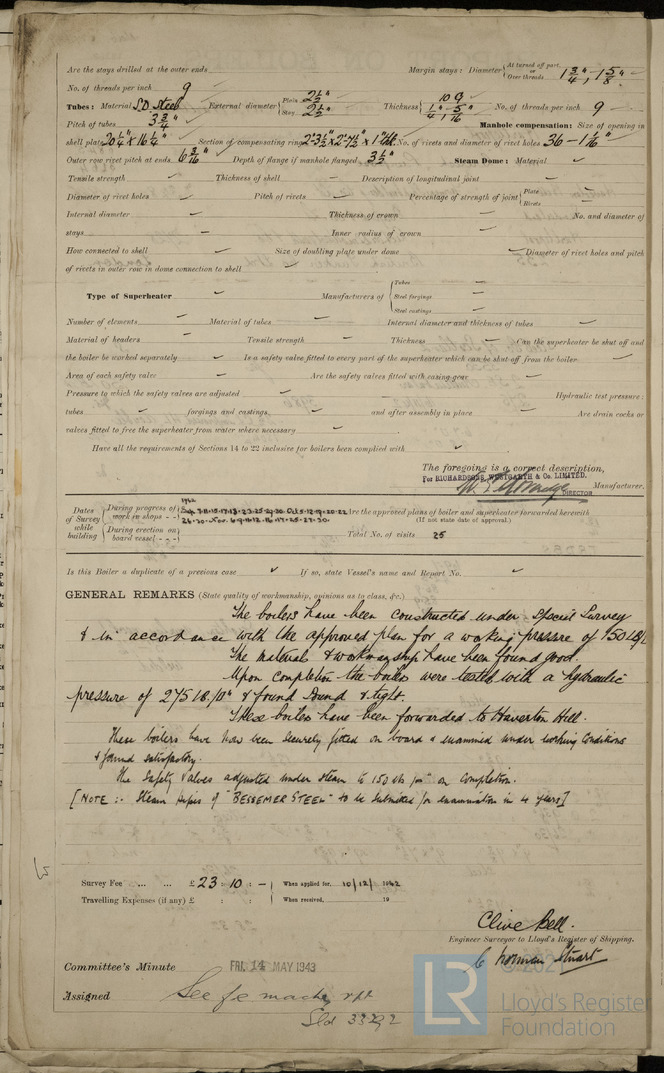 Are the stays drilled at the outer ends Margin stays: Diameter { At turned off part, or Over threads 1 3/4", 1 5/8"
No. of threads per inch 9
Tubes: Material S.D. Steel External diameter { Plain 2 1/2" Stay 2 1/2" Thickness { 10 G 1/4", 5/16" No. of threads per inch 9
Pitch of tubes 3 3/4" Manhole compensation: Size of opening in
shell plate 20 1/4" x 16 1/4" Section of compensating ring 2'-3 1/2" x 2'-7 1/2" x 1" thk. No. of rivets and diameter of rivet holes 36 - 1 1/16"
Outer row rivet pitch at ends 6 3/16" Depth of flange if manhole flanged 3 1/2" Steam Dome: Material
Tensile strength Thickness of shell Description of longitudinal joint
Diameter of rivet holes Pitch of rivets Percentage of strength of joint { Plate Rivets
Internal diameter Thickness of crown No. and diameter of
stays Inner radius of crown
How connected to shell Size of doubling plate under dome Diameter of rivet holes and pitch
of rivets in outer row in dome connection to shell
Type of Superheater Manufacturers of { Tubes Steel forgings Steel castings
Number of elements Material of tubes Internal diameter and thickness of tubes
Material of headers Tensile strength Thickness Can the superheater be shut off and
the boiler be worked separately Is a safety valve fitted to every part of the superheater which can be shut off from the boiler
Area of each safety valve Are the safety valves fitted with easing gear
Pressure to which the safety valves are adjusted Hydraulic test pressure:
tubes forgings and castings and after assembly in place Are drain cocks or
valves fitted to free the superheater from water where necessary
Have all the requirements of Sections 14 to 22 inclusive for boilers been complied with
The foregoing is a correct description,
For RICHARDSONS, WESTGARTH & Co. LIMITED.
Manufacturer.
DIRECTOR
Dates of Survey while building { During progress of work in shops - - 1942
During erection on board vessel - - -
Are the approved plans of boiler and superheater forwarded herewith
(If not state date of approval.)
Total No. of visits 25
Is this Boiler a duplicate of a previous case If so, state Vessel's name and Report No.
GENERAL REMARKS (State quality of workmanship, opinions as to class, &c.)
The boilers have been constructed under Special Survey
& in accordance with the approved plan for a working pressure of 150 LB/□"
The material & workmanship have been found good.
Upon completion the boilers were tested with a hydraulic
pressure of 275 LB./□" & found sound & tight.
These boilers have been forwarded to Haverton Hill.
These boilers have now been securely fitted on board & examined under working conditions
& found satisfactory.
The Safety Valves adjusted under steam to 150 lbs/□" on completion.
[NOTE :- Steam pipes of "BESSEMER STEEL" to be submitted for examination in 4 years]
Survey Fee ... ... £ 23 : 10 : - When applied for, 10/12/1942
Travelling Expenses (if any) £ : : When received, 19
Clive Bell.
Engineer Surveyor to Lloyd's Register of Shipping.
C Norman Stuart
Committee's Minute FRI. 14 MAY 1943
Assigned See fe mach. rpt
Sld 33292
© 2021
LR
Lloyd's Register
Foundation